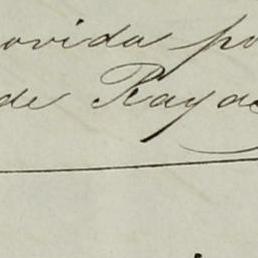 ovida po
de Rayas